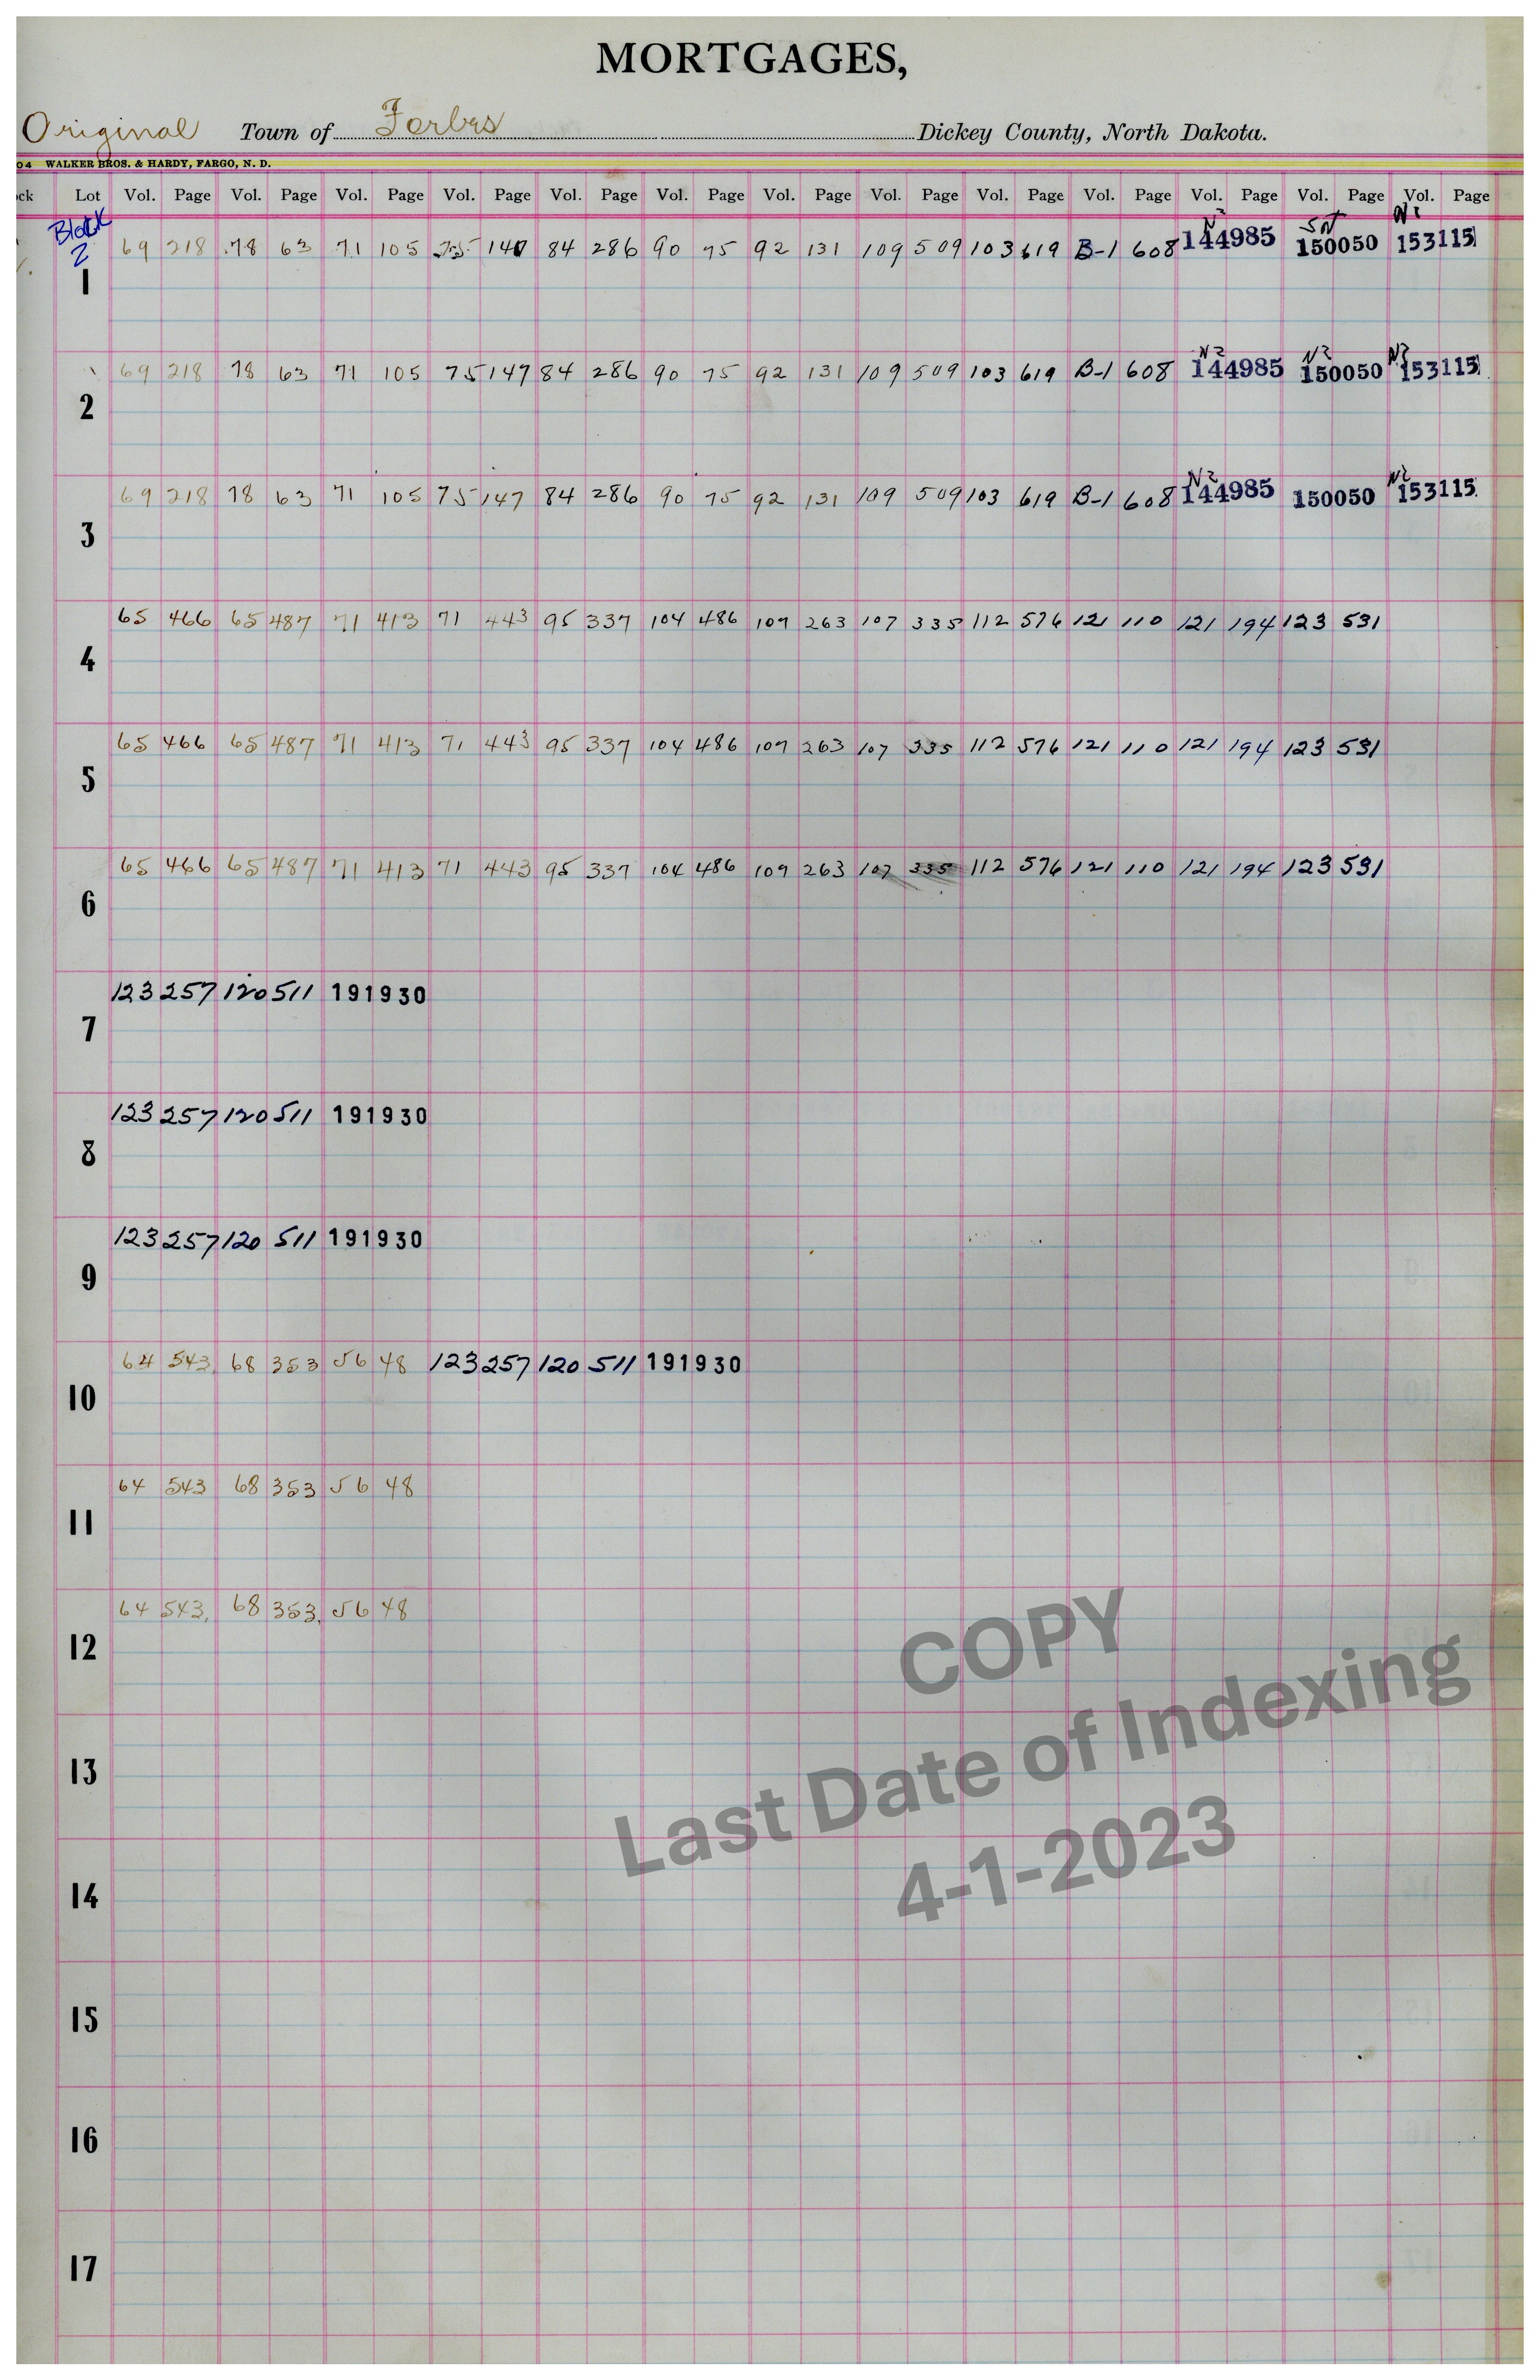 MORTGAGES,
Original Town of Forbes Dickey County, North Dakota.
04 WALKER BROS. & HARDY, FARGO, N. D.
ck Lot Vol. Page Vol. Page Vol. Page Vol. Page Vol. Page Vol. Page Vol. Page Vol. Page Vol. Page Vol. Page Vol. Page Vol. Page Vol. Page
Block
2
69 218 78 63 71 105 75 147 84 286 90 75 92 131 109 509 103 619 B-1 608 144985 150050 153115
1
N2 N2 N2
69 218 78 63 71 105 75 147 84 286 90 75 92 131 109 509 103 619 B-1 608 144985 150050 153115
2
N2 N2
69 218 78 63 71 105 75 147 84 286 90 75 92 131 109 509 103 619 B-1 608 144985 150050 153115
3
65 466 65 487 71 413 71 443 95 337 104 486 109 263 107 335 112 576 121 110 121 194 123 531
4
65 466 65 487 71 413 71 443 95 337 104 486 109 263 107 335 112 576 121 110 121 194 123 531
5
65 466 65 487 71 413 71 443 95 337 104 486 109 263 107 335 112 576 121 110 121 194 123 531
6
123 257 120 511 191930
7
123 257 120 511 191930
8
123 257 120 511 191930
9
64 543 68 353 56 48 123 257 120 511 191930
10
64 543 68 353 56 48
11
64 543 68 353 56 48
12
13
14
15
16
17
COPY
Last Date of Indexing
4-1-2023